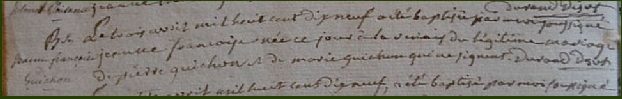 durand dizot
Bs. Le trois avril mil huit cent dix neuf a été baptisée par moi soussigné
jeanne françoise jeanne françoise née ce jour à la du légitime mariage
Guichon de pierre guichon et de marie guichon qui ne signent. durand dizot
avril mil huit cent dix neuf, a été baptisé par moi soussigné